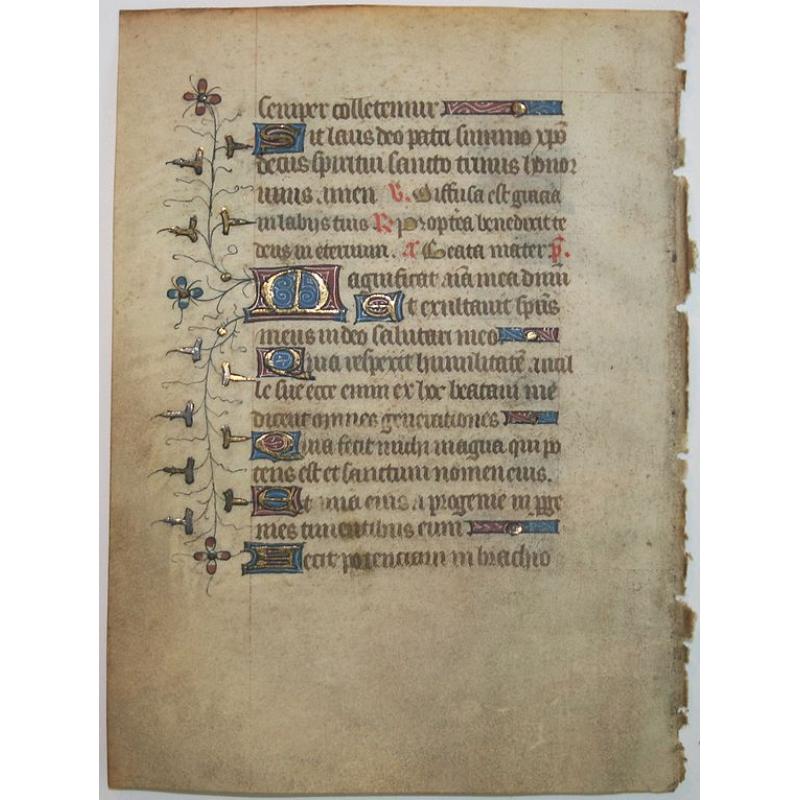 semper colletemur
Sit laus deo patri summo xpo
decus spiritui sancto trinus honor
unus. amen V. Diffusa est gracia
in labijs tuis R propterea benedixit te
deus in eternum. a Beata mater p̄.
Magnificat aīa mea dnm̄
Et exultauit spūs
meus in deo salutari meo
Quia respexit humilitatē ancil
le sue ecce enim ex hoc beatam me
dicent omnes generationes
Quia fecit michi magna qui po
tens est et sanctum nomen eius.
Et mīa eius a progenie in pge
nies timentibus eum
Fecit potenciam in brachio